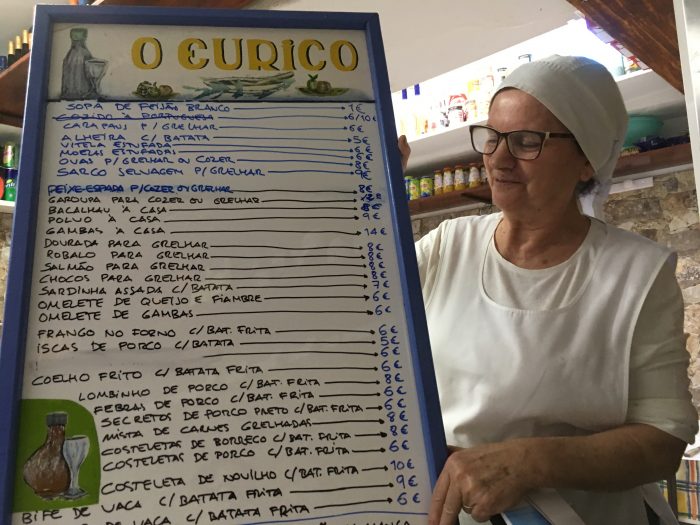 O EURICO
SOPA DE FEIJÃO BRANCO 1€
COZIDO À PORTUGUESA 6/10€
CARAPAU P/GRELHAR 6€
ALHEIRA C/BATATA 5€
VITELA ESTUFADA 6€
MOELAS ESTUFADAS 6€
OVAS P/GRELHAR OU COZER 8€
SARGO SELVAGEM P/GRELHAR 9€
PEIXE-ESPADA P/COZER OU GRELHAR 8€
GAROUPA PARA COZER OU GRELHAR
BACALHAU À CASA 8€
POLVO À CASA 9€
GAMBAS À CASA 14€
DOURADA PARA GRELHAR 8€
ROBALO PARA GRELHAR 8€
SALMÃO PARA GRELHAR 8€
CHOCOS PARA GRELHAR 8€
SARDINHA ASSADA C/BATATA 7€
OMELETE DE QUEIJO E FIAMBRE 6€
OMELETE DE GAMBAS 6€
FRANGO NO FORNO C/BAT. FRITA 6€
ISCAS DE PORCO C/BATATA 5€
6€
COELHO FRITO C/BATATA FRITA 6€
LOMBINHO DE PORCO C/BAT. FRITA 8€
FEBRAS DE PORCO C/BAT. FRITA 6€
SECRETOS DE PORCO PRETO C/BAT. FRITA 6€
MISTA DE CARNES GRELHADAS 8€
COSTELETAS DE BORREGO C/BAT. FRITA 8€
COSTELETAS DE PORCO C/BAT. FRITA 6€
COSTELETA DE NOVILHO C/BAT. FRITA 10€
BIFE DE VACA C/BATATA FRITA 9€
DE VACA C/BATATA FRITA 6€